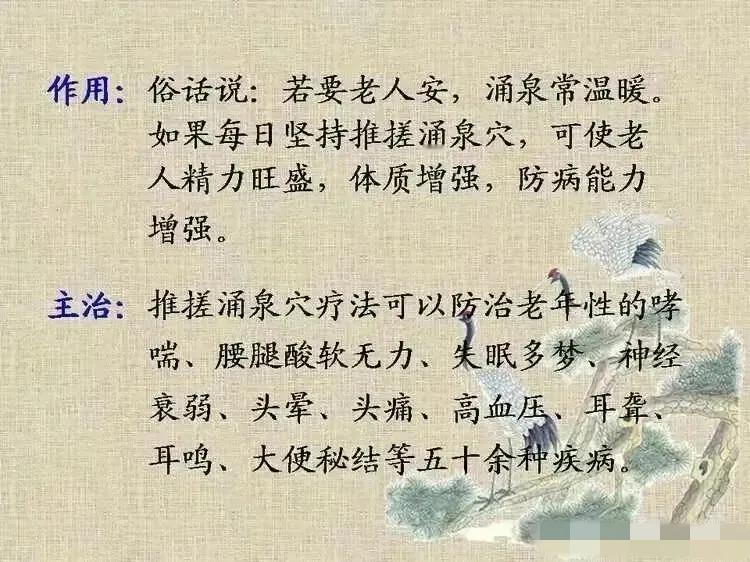 作用：俗话说：若要老人安，涌泉常温暖。
如果每日坚持推搓涌泉穴，可使老
人精力旺盛，体质增强，防病能力
增强。
主治：推搓涌泉穴疗法可以防治老年性的哮
喘、腰腿酸软无力、失眠多梦、神经
衰弱、头晕、头痛、高血压、耳聋、
耳鸣、大便秘结等五十余种疾病。